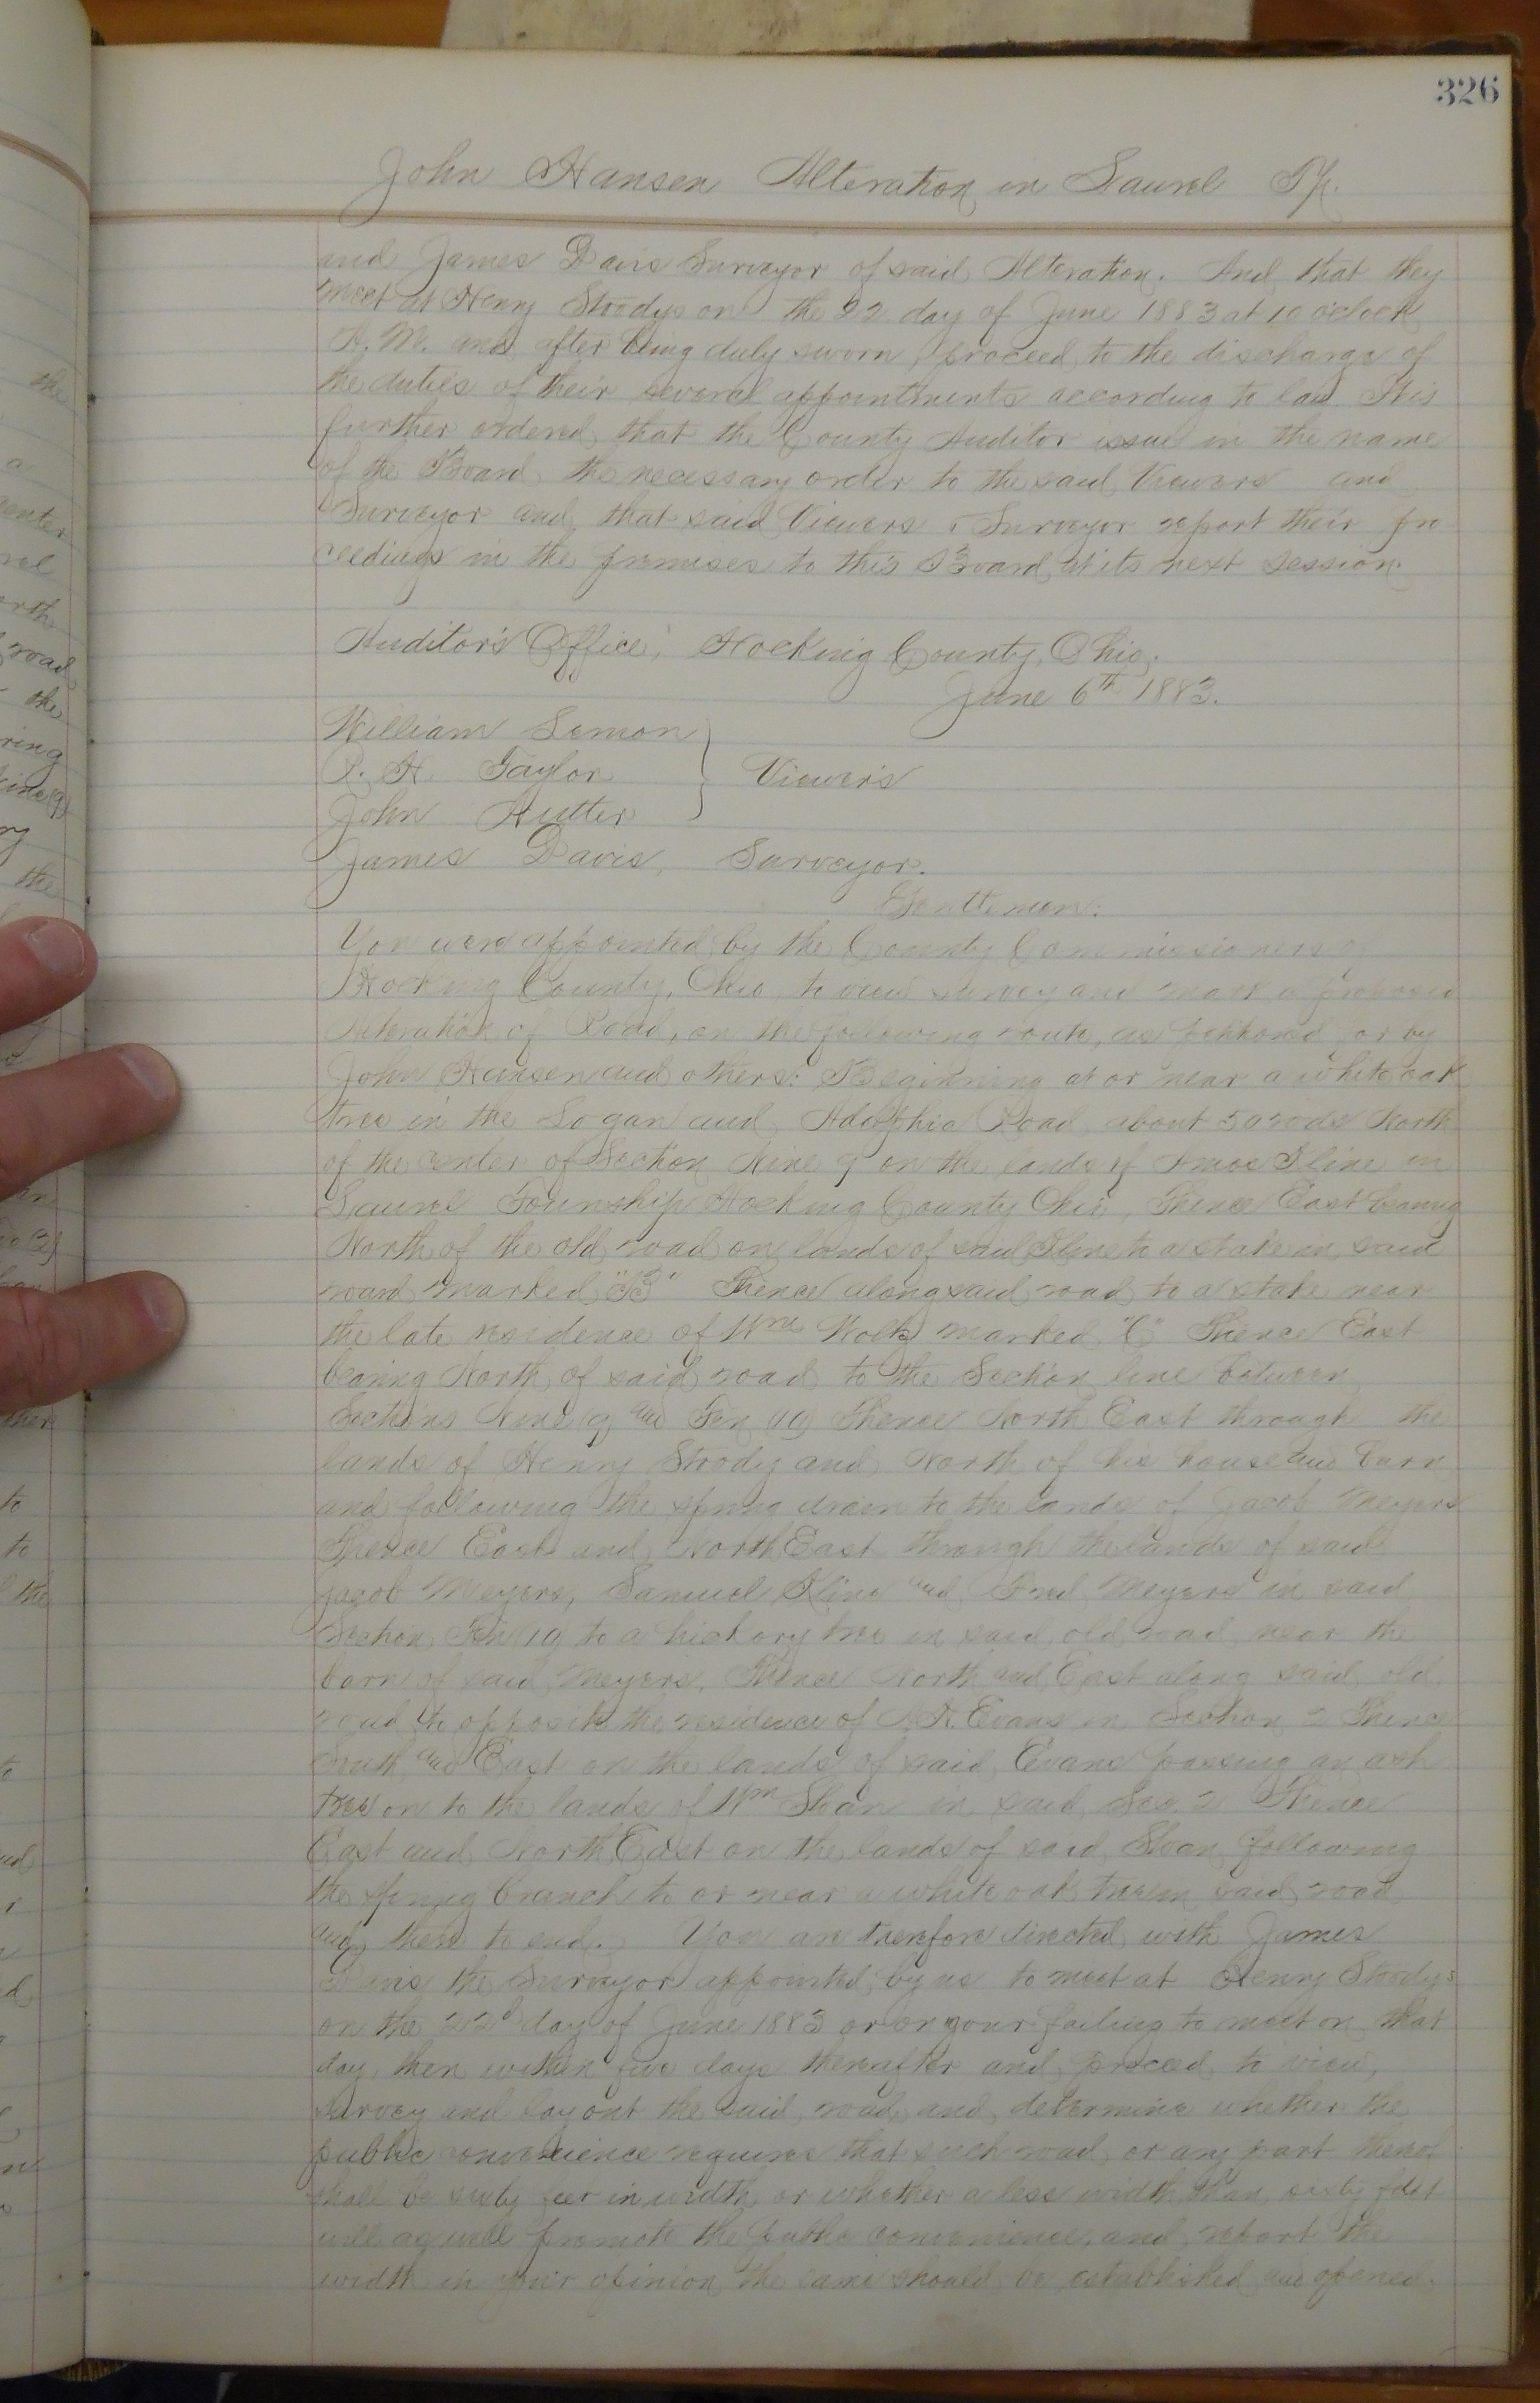 326
John Hansen Alteration in Laurel Tp.
and James Davis Surveyor of said Alteration. And that they
meet at Henry Stroodys on the 22 day of June 1883 at 10 oclock
A. M. and after being duly sworn, proceed to the discharge of
the duties of their several appointments according to law. It is
further ordered that the County Auditor issue in the name
of the Board the necessary order to the said Viewers and
Surveyor and that said Viewers & Surveyor report their pro
ceedings in the premises to this Board at its next session.
Auditor's Office, Hocking County, Ohio,
June 6th 1883.
William Lemon
R. H. Taylor } Viewers
John Hutter
James Davis, Surveyor.
Gentlemen:
You were appointed by the County Commissioners of
Hocking County, Ohio, to view survey and mark a proposed
Alteration of Road, on the following route, as petitioned for by
John Hansen and others: Beginning at or near a white oak
tree in the Logan and Adelphia Road about 50 rods North
of the center of Section Nine 9 on the lands of Amos Kline in
Laurel Township Hocking County Ohio, Thence East bearing
North of the old road on lands of said Kline to a stake in said
road marked "B" Thence along said road to a stake near
the late residence of Wm Woltz marked "C" Thence East
bearing North of said road to the Section line between
Sections Nine (9) and Ten (10) Thence North East through the
lands of Henry Stroody and North of his house and barn
and following the spring drain to the lands of Jacob Meyers
Thence East and North East through the lands of said
Jacob Meyers, Samuel Kline and Fred Meyers in said
Section Ten (10) to a hickory tree in said old road near the
barn of said Meyers, Thence North and East along said old
road to opposite the residence of Evans in Section 2 Thence
South and East on the lands of said Evans passing an ash
tree on to the lands of Wm Sloan in said Sec. 2 Thence
East and North East on the lands of said Sloan following
the spring branch to or near a white oak tree in said road
and there to end. You are therefore directed with James
Davis the Surveyor appointed by us to meet at Henry Stroodys
on the 22d day of June 1883 or or your failing to meet on that
day, then within five days thereafter and proceed to view,
survey and lay out the said road and determine whether the
public convenience requires that such road or any part thereof
shall be sixty feet in width or whether a less width than sixty feet
will as well promote the public convenience, and report the
width in your opinion the same should be established and opened.